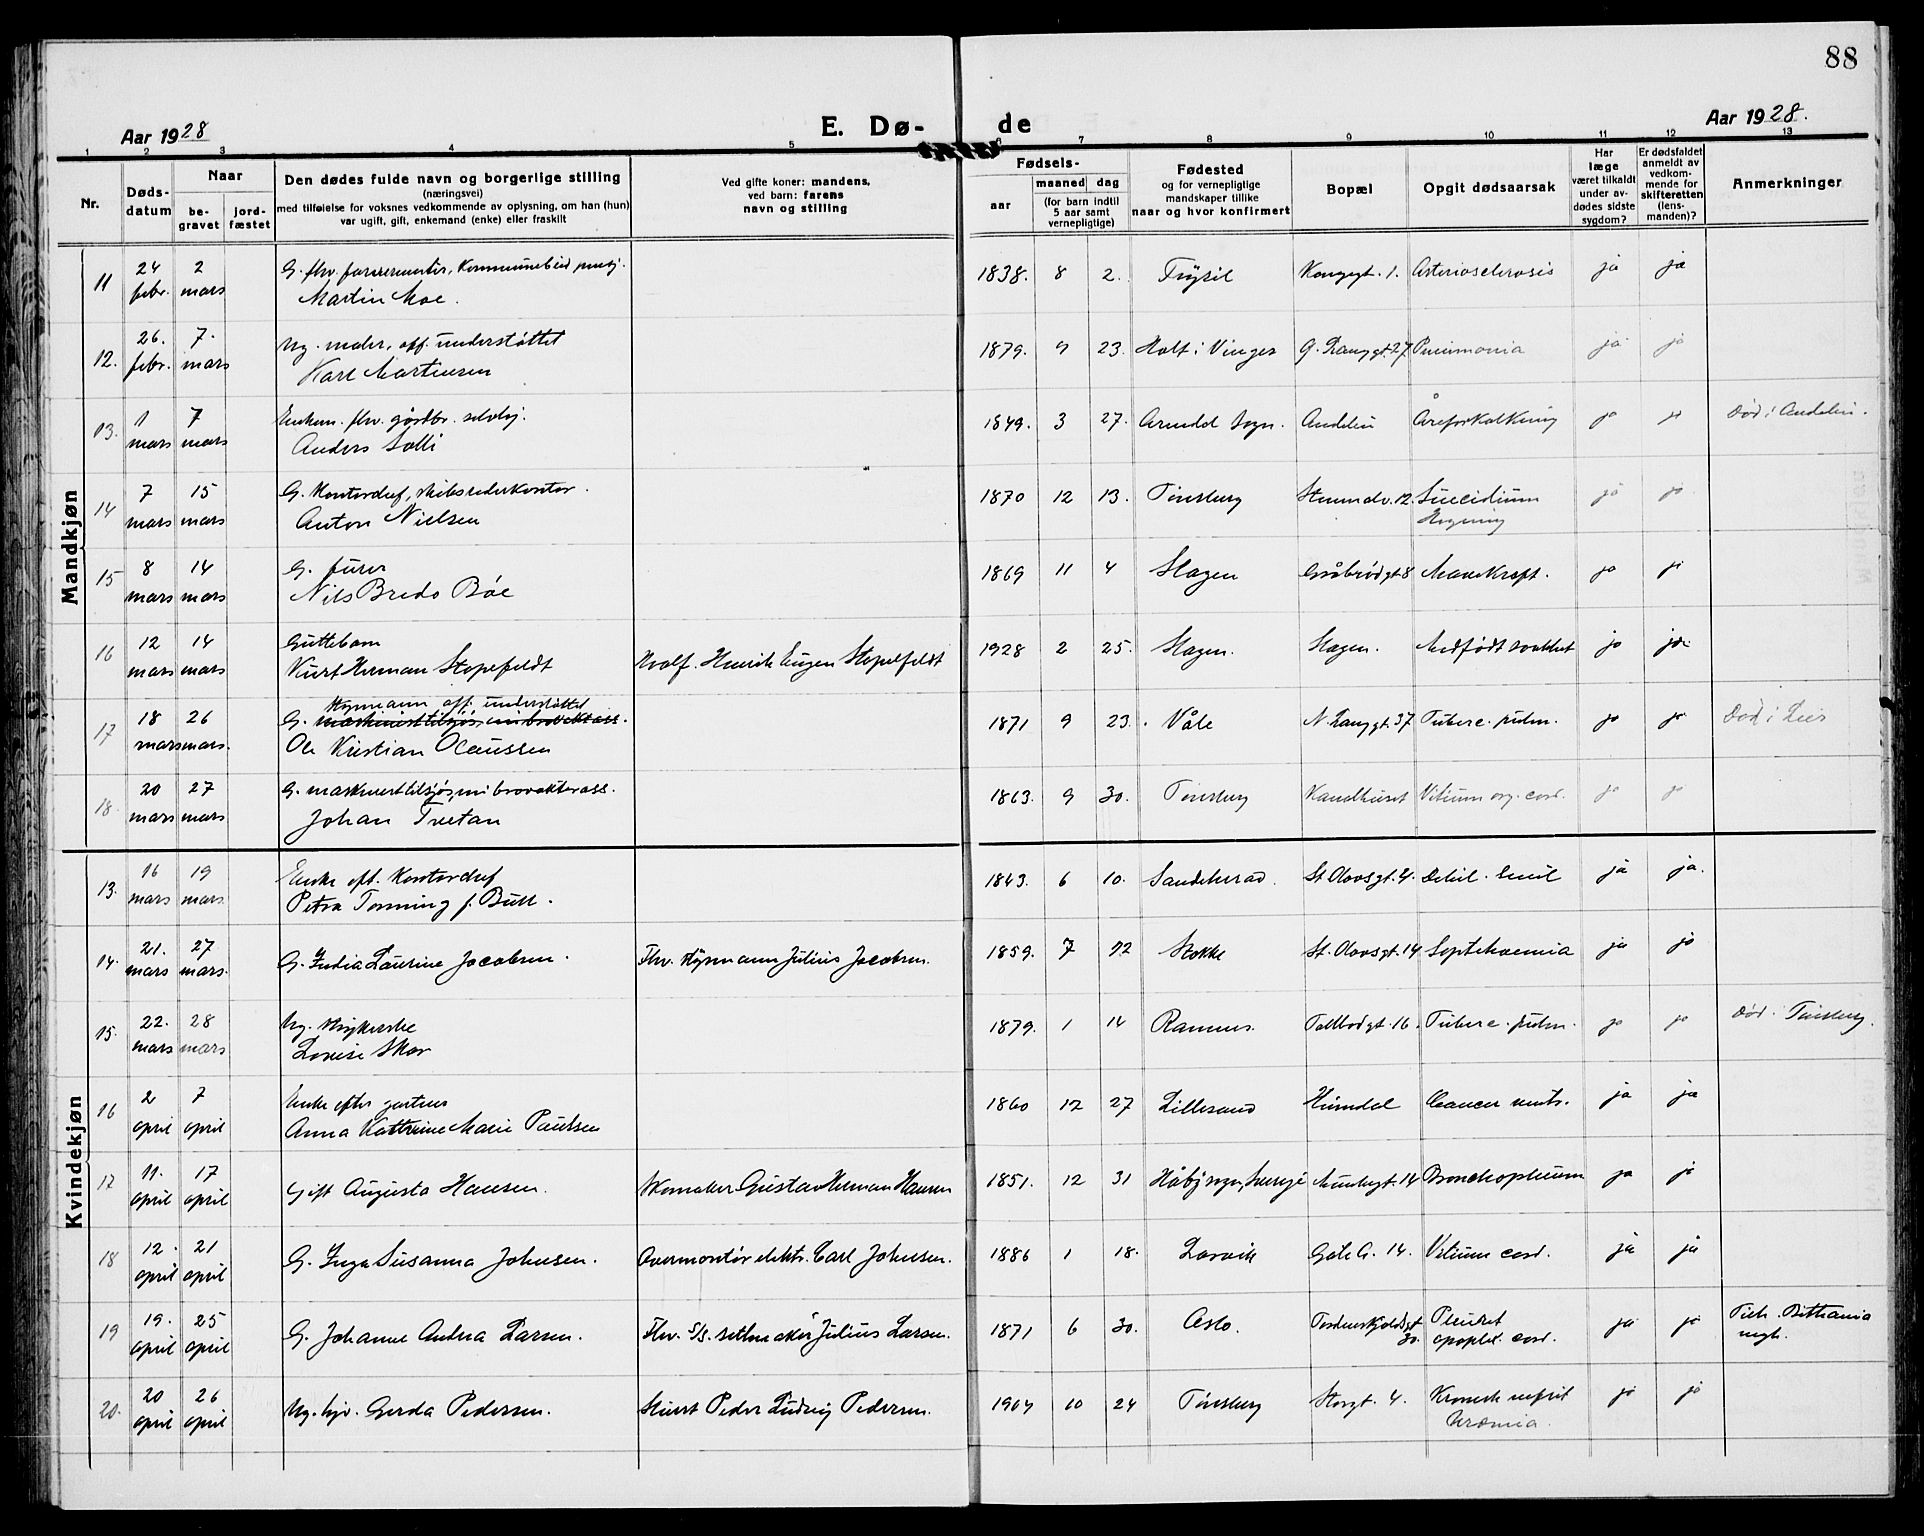 88
Aar 1928
E. Dø-
de
Aar 1928.
1 2 3 4 5 6 7 8 9 10 11 12 13
Nr.
Døds-
datum
Naar
be-
gravet
jord-
fæstet
Den dødes fulde navn og borgerlige stilling
(næringsvei)
med tilføielse for voksnes vedkommende av oplysning, om han (hun)
var ugift, gift, enkemand (enke) eller fraskilt
Ved gifte koner: mandens,
ved barn: farens
navn og stilling
Fødsels-
aar
maaned dag
(for barn indtil
5 aar samt
vernepligtige)
Fødested
og for vernepligtige
mandskaper tillike
naar og hvor konfirmert
Bopæl
Opgit dødsaarsak
Har
læge
været tilkaldt
under av-
dødes sidste
sygdom?
Er dødsfaldet
anmeldt av
vedkom-
mende for
skifteretten
(lens-
manden)?
Anmerkninger
Mandkjøn
11 24 febr. 2 mars
G. fhv.
Martin Moe.
1838. 8 2. Trysil Kongegt. 1. Arteriosclerosis ja ja
12. 26. febr. 7. mars
Ug. maler, off. understøttet
Karl Martinsen
1879. 9 23. Holt i Vinger G. Langgt. 27 Pneumonia ja ja
13. 1 mars 7 mars
Enkem. fhv. gårdbr. selvej.
Anders Solli
1849. 3 27. Arendal sogn. Andebu Åreforkalkning ja ja Død i Andebu.
14 7 mars 15 mars
G. Kontorchef, skibsrederkontor.
Anton Nielsen
1870 12 13. Tønsberg 12. Suicidium ja ja
Hegning
15 8 mars 14 mars
G. furer
Nils Bredo Bøe
1869 11 4 Slagen Gråbrødgt 8 Mavekræft. ja ja
16 12 mars 14 mars
Guttebarn
Kurt Herman Stapelfeldt
Hvalf. Henrik Eugen Stapelfeldt
1928 2 25. Slagen. Slagen. Medfødt svakhet ja ja
17 18 mars 26 mars.
Hyrmann off. understøttet
G. maskinist tilsjøs, nu brovaktass.
Ole Kristian Olaussen
1871 9 23. Våle N. Langgt. 37 Tuberc. pulm. ja ja Død i Lier
18. 20 mars 27 mars
G. maskinist tilsjøs, nu brovakterass.
Johan Tretan
1863. 9 30. Tønsberg Kanalhuset Vitium org. cord. ja ja
Kvindekjøn
13. 16 mars 19 mars
Enke eft. Kontorchef
Petra Tonning f. Bull.
1843. 6 10. Sandeherad. St. Olavsgt. 4. Debil. senil ja ja.
14. 21. mars 27 mars.
G. India Laurine Jacobsen.
Fhv. Hyrmann Julius Jacobsen.
1859. 7 12 Stokke St. Olavsgt. 14 Septichaemia ja ja
15. 22. mars 28 mars
Ug. sykerske
Lovise Skov
1879. 1 14 Ramnes. Tollbodgt. 16. Tuberc. pulm. ja ja Død i Tønsberg.
16 2 april 7 april
Enke efter gartner
Anna Kathrine Marie Paulsen
1860 12 27 Lillesand Hunndal Cancer ventr. ja ja
17 11. april 17 april
Gift Augusta Hansen.
Skomaker Gustav Herman Hansen
1851. 12 31 Håby sogn, Sverige Munkegt. 14 Bronchopneum ja ja
18 12. april 21 april
G. Inga Susanna Johnsen.
Overmontør elektr. Carl Johnsen.
1886 1 18. Larvik Gate A. 14. Vitium cord. ja ja
19 19. april 25 april
G. Johanne Andrea Larsen.
Fhv. S/S. seilmaker Julius Larsen.
1871 6 30. Oslo. Tordenskjoldsgt 30. Pleurit ja ja
apoplex. cord.
20. 20 april 26 april
Ug. hjv. Gerda Pedersen.
Stuert Peder Ludvig Pedersen.
1904 10 24 Tønsberg Storgt. 4. Kronisk nefrit ja ja
Uræmia.